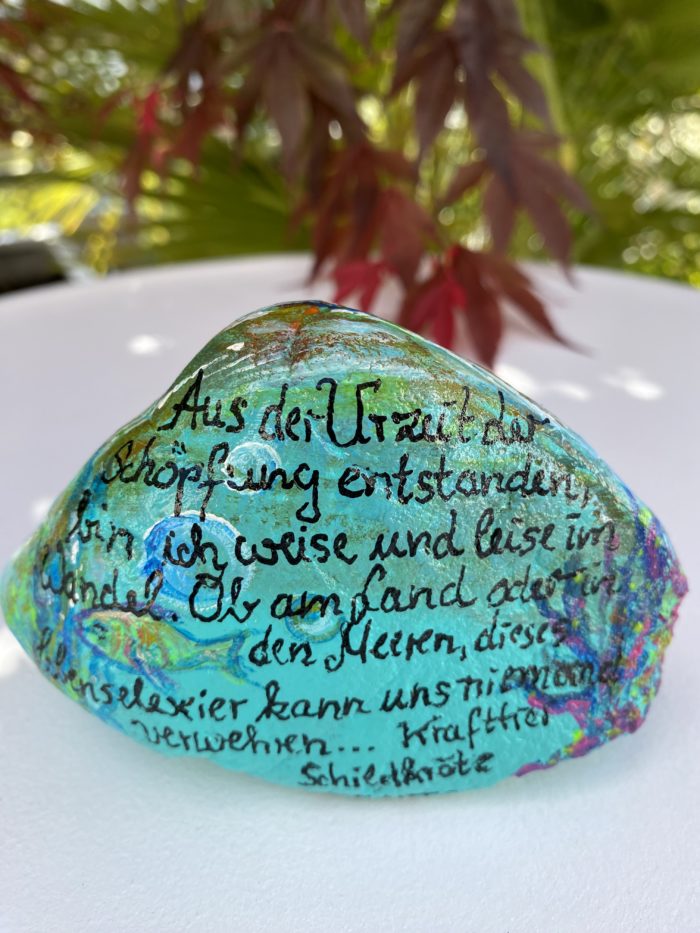 Aus der Urzeit der
Schöpfung entstanden,
bin ich weise und leise im
Wandel. Ob am Land oder in
den Meeren, dieses
Lebenselexier kann uns niemand
verwehren... Krafttier
Schildkröte